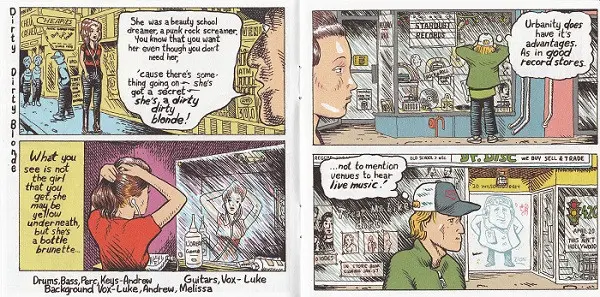 Dirty Dirty Blonde
She was a beauty school
dreamer, a punk rock screamer,
You know that you want
her even though you don't
need her,
'cause there's some-
thing going on — she's
got a secret —
she's, a dirty
dirty
blonde!
What you
see is not
the girl
that you
get, she
may be
yellow
underneath,
but she's
a bottle
brunette...
Drums, Bass, Perc, Keys-Andrew
Guitars, Vox- Luke
Background Vox-Luke, Andrew, Melissa
STARDUST
RECORDS
Urbanity does
have it's
advantages.
As in good
record stores.
...not to mention
venues to hear
live music!
DR. DISC
WE BUY SELL & TRADE
APRIL 20